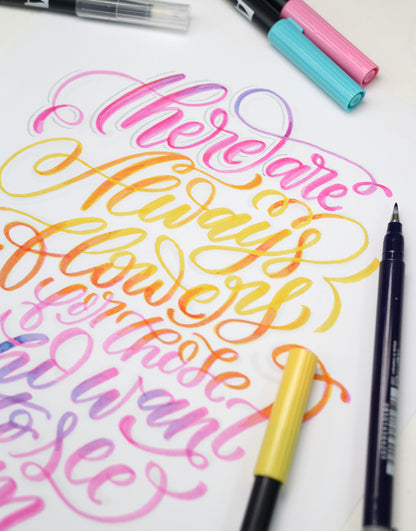 There are
Always
flowers
for those
who want
to see